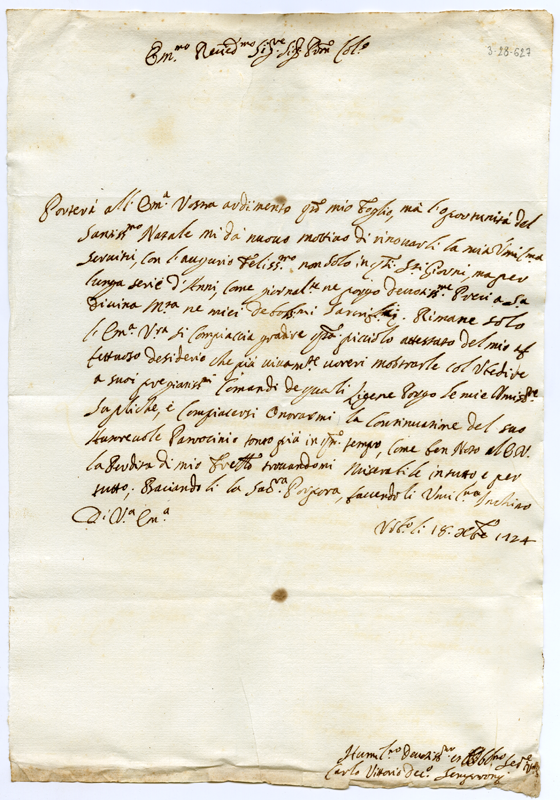 Em.mo Reved.mo Sig.re Sig.r Pron Col.o
3-28-627
Porterà all'Em.a Vostra ardimento q.to mio foglio, mà l'oportunità del
Santiss.mo Natale mi dà nuovo mottivo di rinovarli la mia Umil.ma
Servitù, con l'augurio feliss.mo non solo in q.ti S.ti Giorni, ma per
lunga serie d'Anni, come giornal.te ne porgo devotiss.me Preci a Sa
Divina M.tà ne miei debolis.mi Rimane solo
l'Em.a V.ra si compiaccia gradire q.to picciolo attestato del mio af
fettuoso desiderio che più vivam.te vorrei mostrarle col Ubedire
a suoi pregiatiss.mi Comandi de quali Porgo le mie Umiss.e
Supliche, è compiacersi Onorarmi la Continuazione del suo
Autorevole Patrocinio tanto più in q.to tempo, come ben Noto al E.V.
la Perdita di mio Fratello trovandomi Miserabile in tutto e per
tutto, Baciandoli la Sac.ra Porpora, facendoli Umil.mo Inchino
Di V.a Em.a
18. Xbre 1724
Humil.mo Devotiss.mo et Obbl.mo Ser.e
Carlo Vittorio